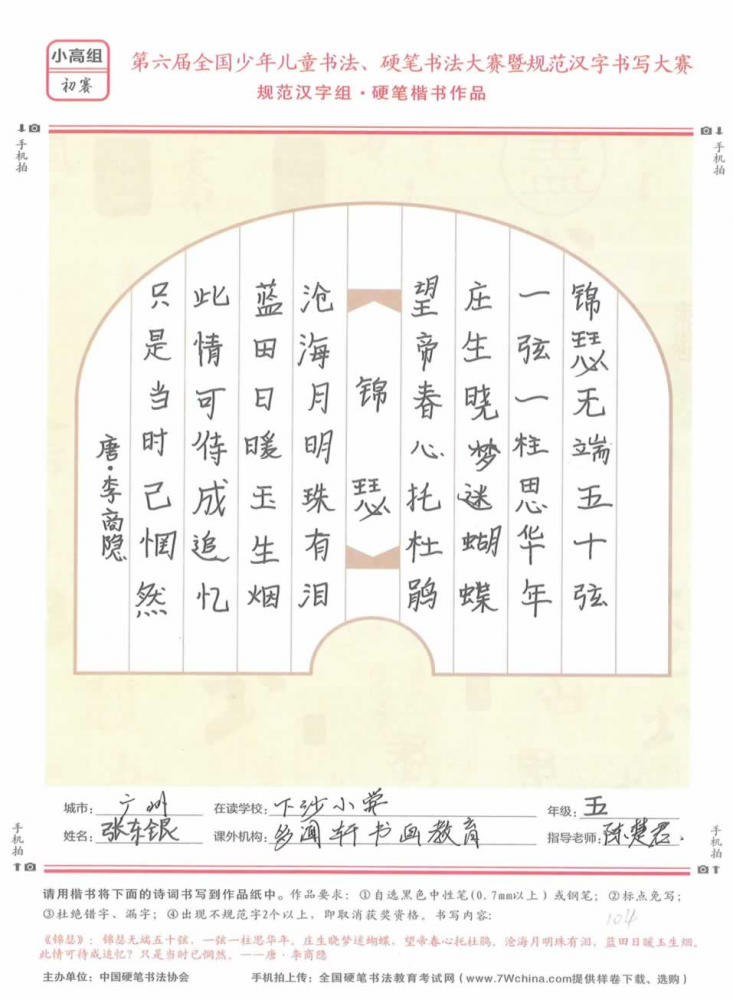 小高组
初赛
第六届全国少年儿童书法、硬笔书法大赛暨规范汉字书写大赛
规范汉字组·硬笔楷书作品
手机拍
手机拍
锦瑟无端五十弦
一弦一柱思华年
庄生晓梦迷蝴蝶
望帝春心托杜鹃
锦瑟
沧海月明珠有泪
蓝田日暖玉生烟
此情可待成追忆
只是当时已惘然
唐·李商隐
城市:广州 在读学校:下沙小学 年级:五
姓名:张东银 课外机构:多闻轩书画教育 指导老师:陈楚君
手机拍
手机拍
请用楷书将下面的诗词书写到作品纸中。作品要求:①自选黑色中性笔(0.7mm以上)或钢笔;②标点免写;
③杜绝错字、漏字;④出现不规范字2个以上,即取消获奖资格。书写内容:
104
《锦瑟》:锦瑟无端五十弦,一弦一柱思华年。庄生晓梦迷蝴蝶,望帝春心托杜鹃。沧海月明珠有泪,蓝田日暖玉生烟。
此情可待成追忆?只是当时已惘然。——唐·李商隐
主办单位:中国硬笔书法协会 手机拍上传:全国硬笔书法教育考试网(www.7Wchina.com提供样卷下载、选购)